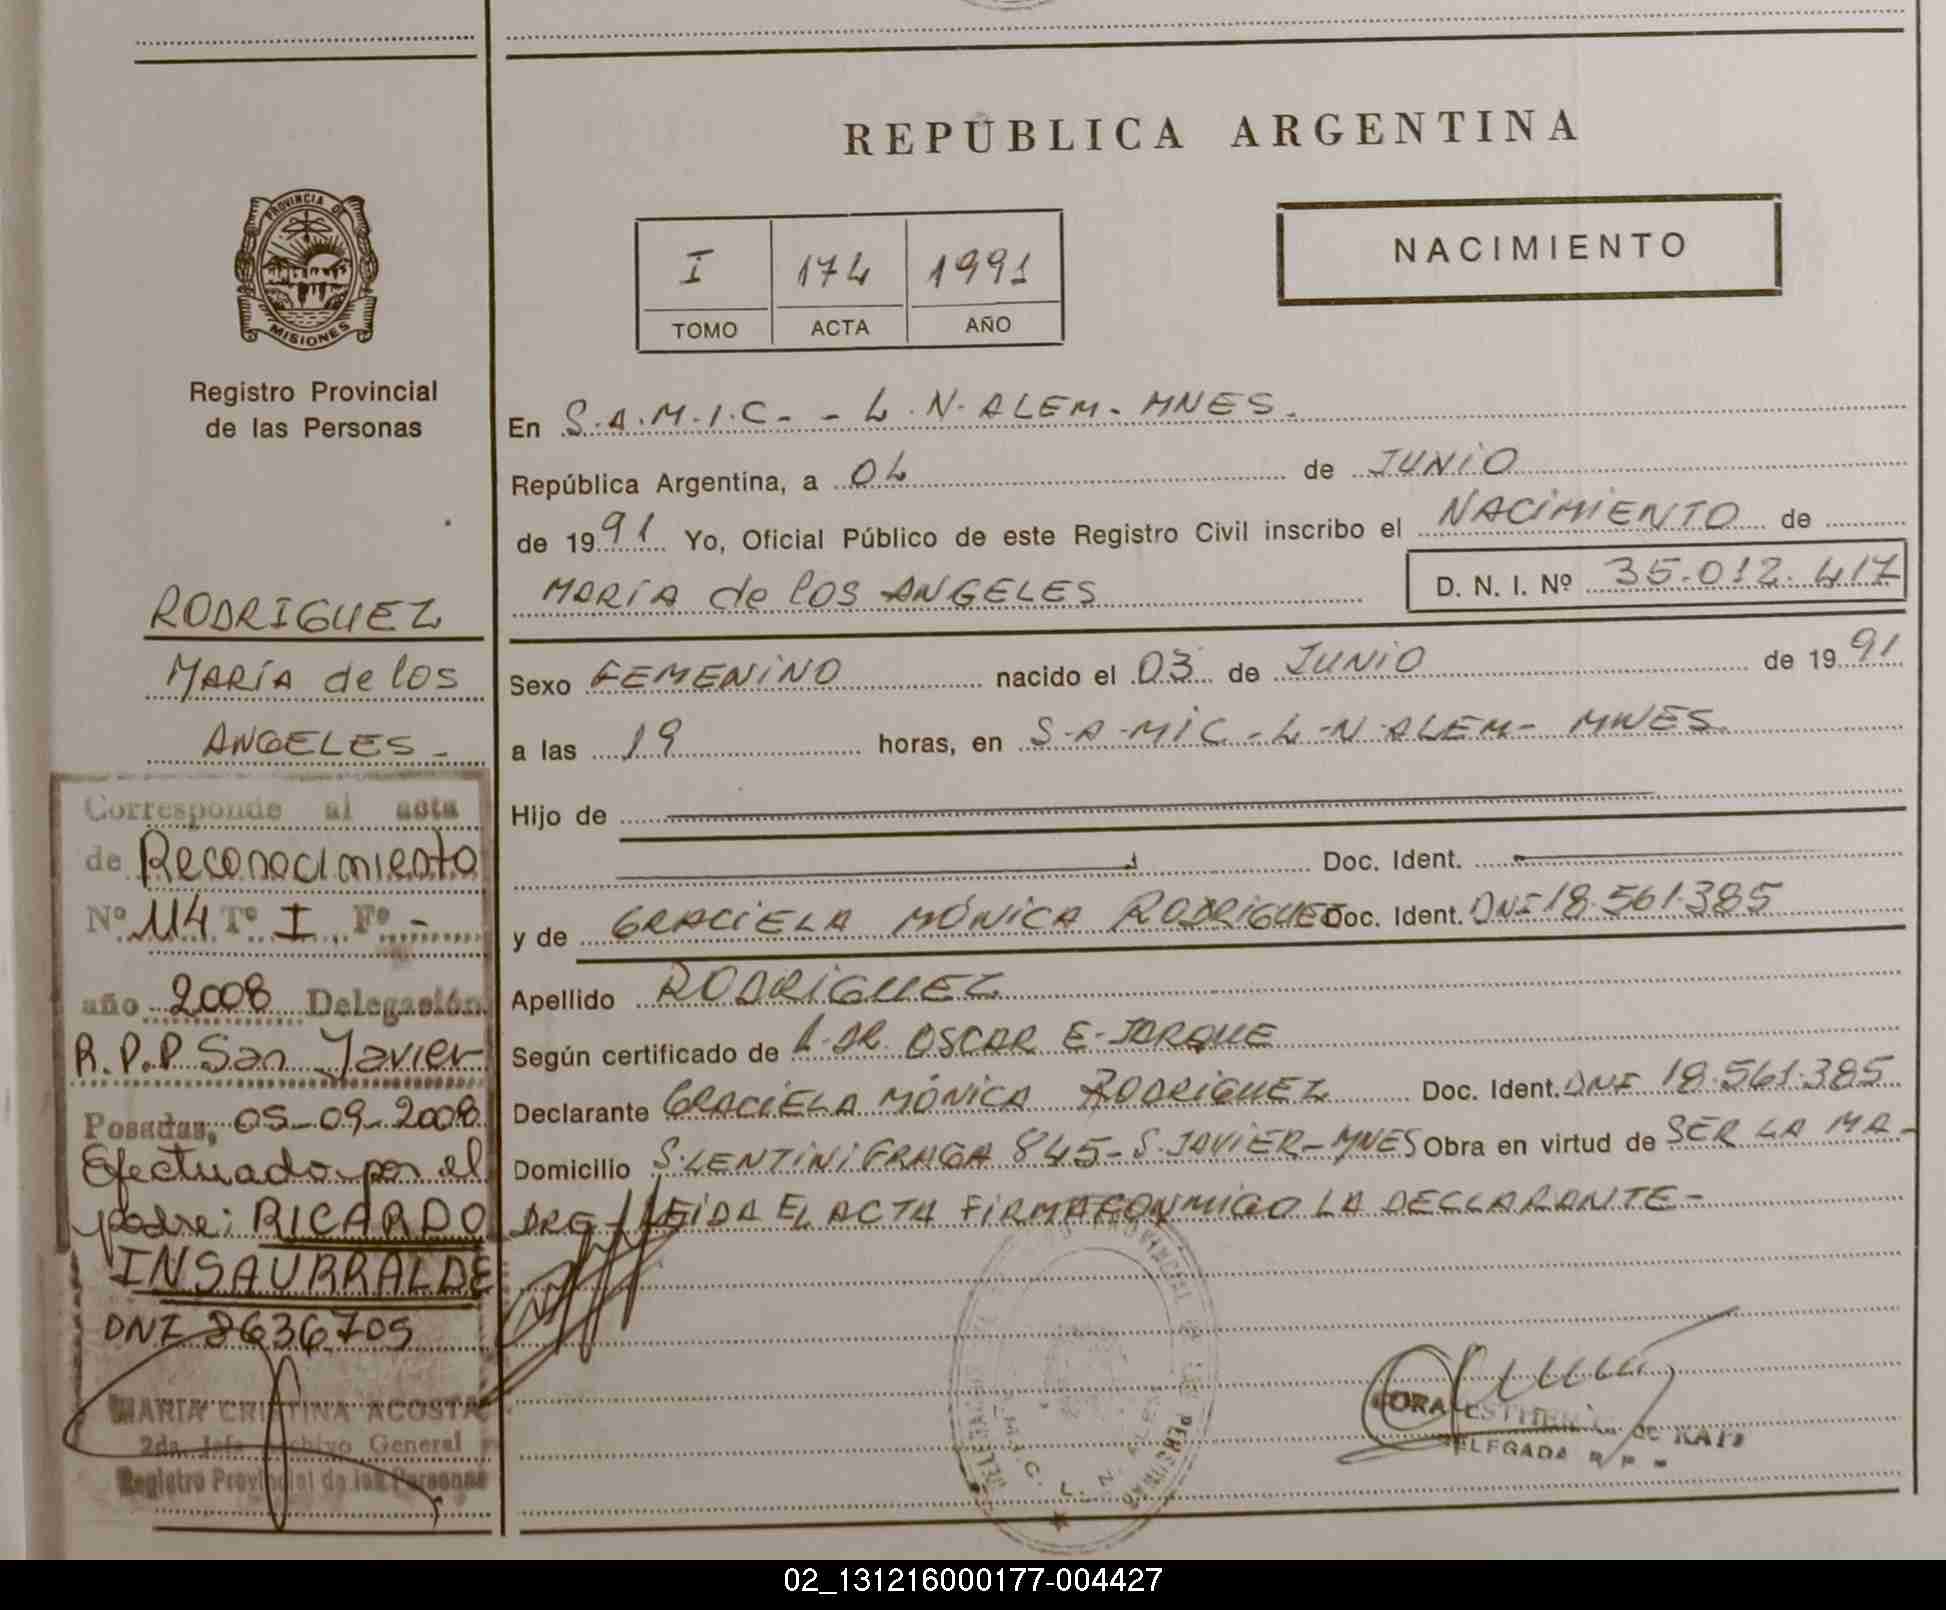 REPÚBLICA ARGENTINA
PROVINCIA DE
MISIONES
Registro Provincial
de las Personas
I 174 1991
TOMO ACTA AÑO
NACIMIENTO
En S.A.M.I.C. - L.N. ALEM. MNES.
República Argentina, a 04 de JUNIO
de 1991 Yo, Oficial Público de este Registro Civil inscribo el NACIMIENTO de
MARÍA de los ANGELES D. N. I. Nº 35.012.417
Sexo FEMENINO nacido el 03 de JUNIO de 1991
a las 19 horas, en S.A.MIC. - L-N-ALEM- MNES
Hijo de
Doc. Ident.
y de GRACIELA MÓNICA RODRIGUEZ Doc. Ident. DNI 18.561.385
Apellido RODRIGUEZ
Según certificado de DR. OSCAR E. JORQUE
Declarante GRACIELA MÓNICA RODRIGUEZ Doc. Ident. DNI 18.561.385
Domicilio S.LENTINI FRAGA 845-S.JAVIER-MNES Obra en virtud de SER LA MA-
DRE- LEIDA EL ACTA FIRMA CONMIGO LA DECLARANTE-
RODRIGUEZ
MARÍA de los
ANGELES-
Corresponde al acta
de Reconocimiento
Nº 114 Tº I Fº -
año 2008 Delegación
R.P.P. San Javier
Posadas, 05-09-2008
Efectuado por el
padre: RICARDO
INSAURRALDE
DNI 8636705
MARIA CRISTINA ACOSTA
2da. Jefa Archivo General
Registro Provincial de las Personas
DELEGADA R.P.
02_131216000177-004427